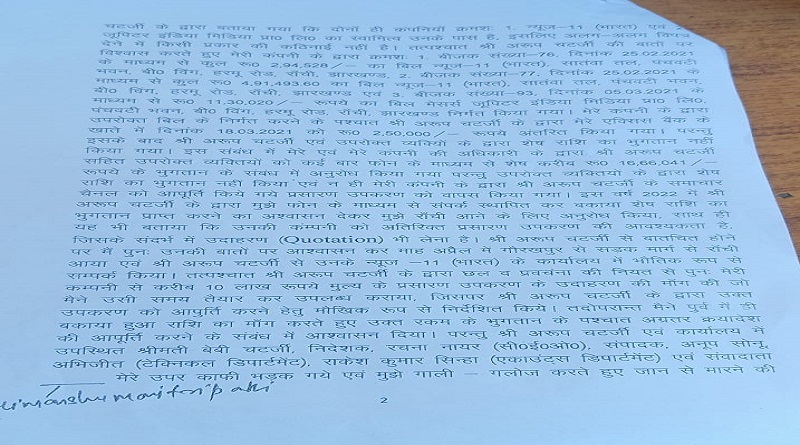 चटर्जी के द्वारा बताया गया कि दोनों ही कंपनियॉ क्रमशः 1. न्यूज–11 (भारत) एवं 2.
जूपिटर इंडिया मिडिया प्रा० लि० का स्वामित्व उनके पास है, इसलिए अलग–अलग विपत्र
देने में किसी प्रकार की कठिनाई नहीं है। तत्पश्चात श्री अरूप चटर्जी की बातों पर
विश्वास करते हुए मेरी कंपनी के द्वारा क्रमशः 1. बीजक संख्या–76, दिनांक 25.02.2021
के माध्यम से कुल रू० 2,94,528/– का बिल न्यूज–11 (भारत), सातंवा तल, पंचवटी
भवन, बी० विंग, हरमू रोड, रॉची, झारखण्ड, 2. बीजक संख्या–77, दिनांक 25.02.2021 के
माध्यम से कुल रू० 4,91,493.60 का बिल न्यूज–11 (भारत), सातंवा तल, पंचवटी भवन,
बी० विंग, हरमू रोड, रॉची, झारखण्ड एवं 3. बीजक संख्या–93, दिनांक 05.03.2021 के
माध्यम से रू० 11,30,020/– रूपये का बिल मेसर्स जूपिटर इंडिया मिडिया प्रा० लि०,
पंचवटी भवन, बी० विंग, हरमू रोड, रॉची, झारखण्ड निर्गत किया गया। मेरे कंपनी के द्वारा
उपरोक्त बिल के निर्गत करने के पश्चात श्री अरूप चटर्जी के द्वारा मेरे एक्सिस बैक के
खाते में दिनांक 18.03.2021 को रू० 2,50,000/– रूपये अंतरित किया गया। परन्तु
इसके बाद श्री अरूप चटर्जी एवं उपरोक्त व्यक्तियों के द्वारा शेष राशि का भुगतान नहीं
किया गया। इस संबंध में मेरे एवं मेरे कंपनी की अधिकारी के द्वारा श्री अरूप चटर्जी
सहित उपरोक्त व्यक्तियों को कई बार फोन के माध्यम से शेष करीब रू० 16,66,041/–
रूपये के भुगतान के संबंध में अनुरोध किया गया परन्तु उपरोक्त व्यक्तियों के द्वारा शेष
राशि का भुगतान नहीं किया एवं न ही मेरी कंपनी के द्वारा श्री अरूप चटर्जी के समाचार
चैनल को आपुर्ति किये गये प्रसारण उपकरण को वापस किया गया। इस वर्ष 2022 में श्री
अरूप चटर्जी के द्वारा मुझे फोन के माध्यम से संपर्क स्थापित कर बकाया शेष राशि का
भुगतान प्राप्त करने का अश्वासन देकर मुझे रॉची आने के लिए अनुरोध किया, साथ ही
यह भी बताया कि उनकी कम्पनी को अतिरिक्त प्रसारण उपकरण की आवश्यकता है,
जिसके संदर्भ में उदाहरण (Quotation) भी लेना है। श्री अरूप चटर्जी से बातचित होने
पर मैं पुनः उनकी बातो पर आश्वासन कर माह अप्रैल में गोरखपुर से सड़क मार्ग से रॉची
आया एवं श्री अरूप चटर्जी से उनके न्यूज –11 (भारत) के कार्यालय में भौतिक रूप से
सम्पर्क किया। तत्पश्चात श्री अरूप चटर्जी के द्वारा छल व प्रवंचना की नियत से पुनः मेरी
कम्पनी से करीब 10 लाख रूपये मुल्य के प्रसारण उपकरण के उदाहरण की मॉग की जो
मैने उसी समय तैयार कर उपलब्ध कराया, जिसपर श्री अरूप चटर्जी के द्वारा उक्त
उपकरण को आपुर्ति करने हेतु मौखिक रूप से निर्देशित किये। तदोपरान्त मैने पुर्व में ही
बकाया हुआ राशि का मॉग करते हुए उक्त रकम के भुगतान के पश्चात अग्रतर क्रयादेश
की आपुर्ति करने के संबंध में आश्वासन दिया। परन्तु श्री अरूप चटर्जी एवं कार्यालय में
उपस्थित श्रीमती बेबी चटर्जी, निदेशक, रचना नायर (सी०ई०ओ०), संपादक, अनूप सोनू,
अभिजीत (टेक्निकल डिपार्टमेंट), राकेश कुमार सिन्हा (एकाउंट्स डिपार्टमेंट) एवं संवादाता
मेरे उपर काफी भड़क गये एवं मुझे गाली – गलौज करते हुए जान से मारने की
2